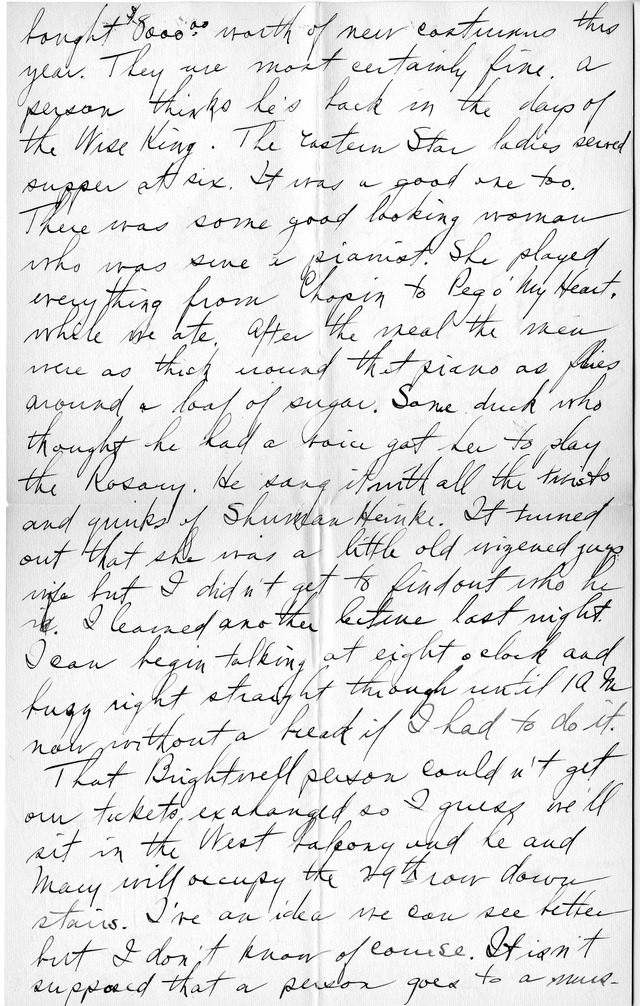 bought $8000.00 worth of new costumes this
year. They are most certainly fine. A
person thinks he's back in the days of
the Wise King. The Eastern Star ladies served
supper at six. It was a good one too.
There was some good looking woman
who was sure a pianist. She played
everything from Chopin to Peg o' My Heart.
while we ate. After the meal the men
were as thick around that piano as flies
around a loaf of sugar. Some duck who
thought he had a voice got her to play
the Rosary. He sang it with all the twists
and quirks of Shuman Heinke. It turned
out that she was a little old wizened guys
wife but I didn't get to find out who he
is. I learned another lecture last night.
I can begin talking at eight oclock and
buzz right straight through until 1 A M
now without a break if I had to do it.
That Brightwell person couldn't get
our tickets exchanged so I guess we'll
sit in the West balcony and he and
Mary will occupy the 29th row down
stairs. I've an idea we can see better
but I don't know of course. It isn't
supposed that a person goes to a mus-